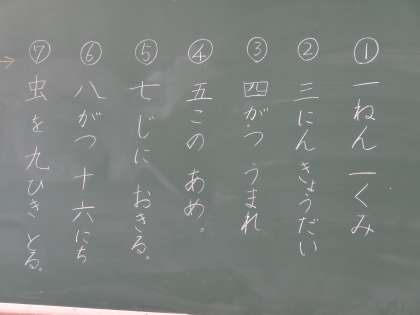 ① 一ねん 一くみ
② 三にん きょうだい
③ 四がつ うまれ
④ 五この あめ。
⑤ 七じに おきる。
⑥ 八がつ 十六にち
⑦ 虫を 九ひき とる。